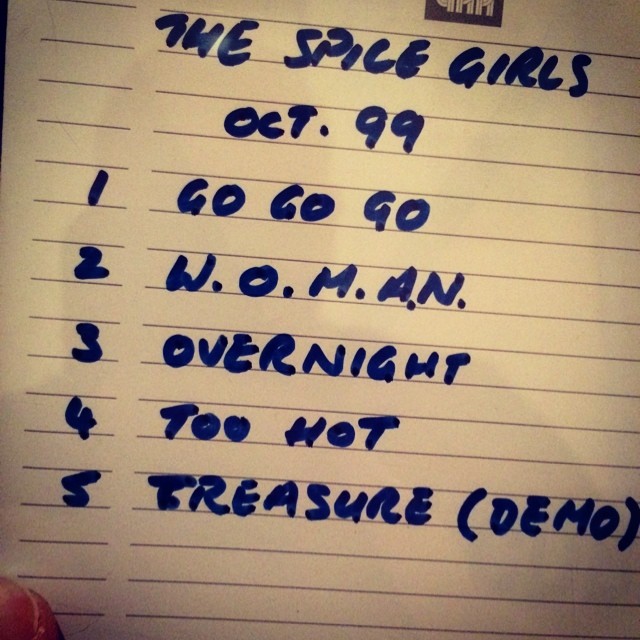 THE SPICE GIRLS
OCT. 99
1 GO GO GO
2 W.O.M.A.N.
3 OVERNIGHT
4 TOO HOT
5 TREASURE (DEMO)